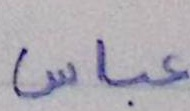 عباس